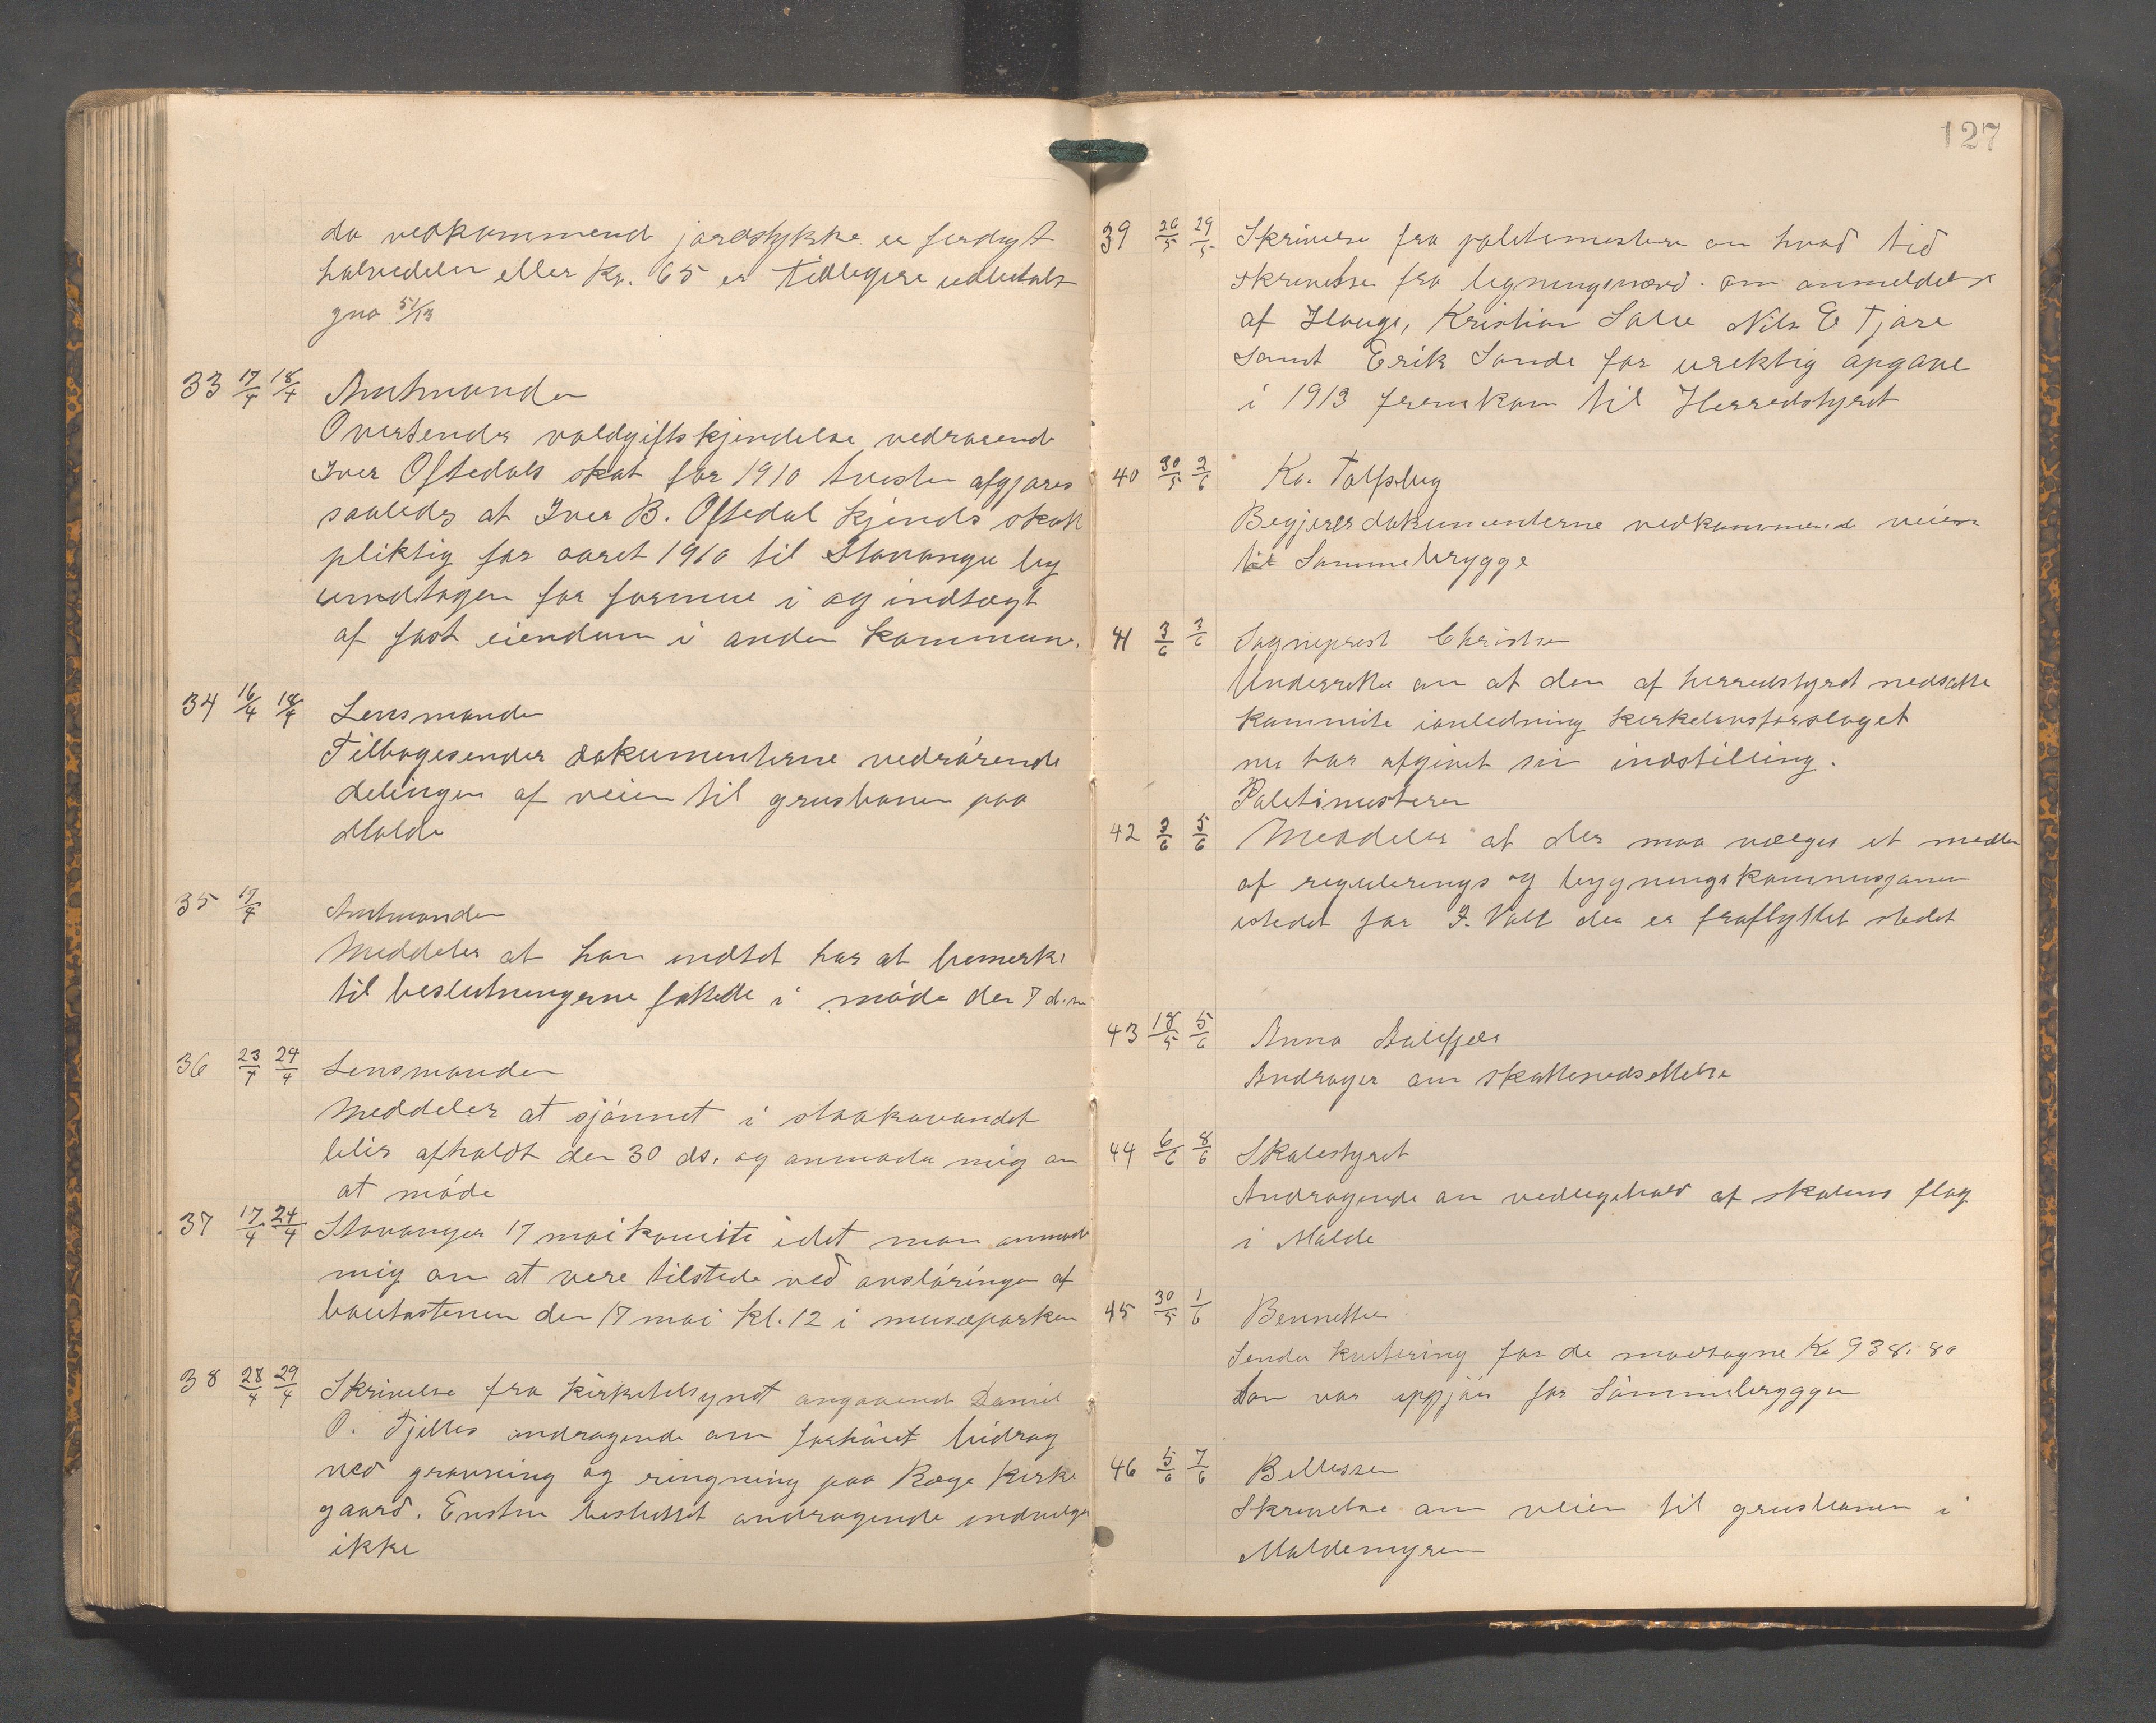 da vedkommend jordstykke er ferdigt
halvedelen eller Kr. 65 er tidligere udbetalt
gno 51/13
33 17/4 18/4 Amtmanden
Oversender voldgiftskjendelse vedrørend
Iver Oftedals skat for 1910 tvisten afgjøres
saaleds at Iver B. Oftedal kjends skatt
pliktig for aaret 1910 til Stavanger by
undtagen for formue i og indtægt
af fast eiendom i anden kommune.
34 16/4 18/4 Lensmanden
Tilbagesender dokumenterne vedrørende
delingen af veien til grusbanen paa
Malde
35 17/4 Amtmanden
Meddeler at han indtet har at bemerke
til beslutningerne fattede i møde den 7 d.m
36 23/4 24/4 Lensmanden
Meddeler at sjønnet i staakavandet
blir afholdt den 30 ds. og anmoder mig om
at møde
37 17/4 24/4 Stavanger 17 mai komite idet man anmode
mig om at være tilstede ved avsløringen af
bautastenen den 17 mai kl. 12 i museparken
38 28/4 29/4 Skrivelse fra kirketilsynet angaaend Daniel
O. Tjelles andragende om forhøiet bidrag
ved gravning og ringning paa Røge kirke
gaard. Enstem besluttet andragende indvilges
ikke
127
39 26/5 29/5 Skrivelse fra politimesteren om hvad tid
skrivelse fra ligningsnævd. om anmeldelse
af Hauge, Kristian Nils E Tjøre
samt Erik Sande for urektig opgave
i 1913 fremkom til Herredstyret
40 30/5 2/6 Ka. Tolfsby
Begjerer dokumenterne vedkommende veien
til Sømmebrygge
41 3/6 3/6 Sogneprest Christsen
Underretter om at den af herredstyret nedsatte
kommite ianledning kirkelovsforslaget
nu har afgivet sin indstilling.
Politimesteren
42 3/6 5/6 Meddeler at der maa vælges et medlem
af regulerings og bygningskommisjonen
istedet for J. Voll der er fraflyttet stedet
43 18/5 5/6 Anna Aalgjeld
Andrager om skattenedsettelse
44 6/6 8/6 Skolestyret
Andragende om vedligehold af skolens flag
i Malde
45 30/5 1/6 Bennetter
Sender kvitering for de modtagne Kr 938.80
som var opgjør for Sømmebryggen
46 5/6 7/6 Bellesen
Skrivelse om veien til grusbanen i
Maldemyren